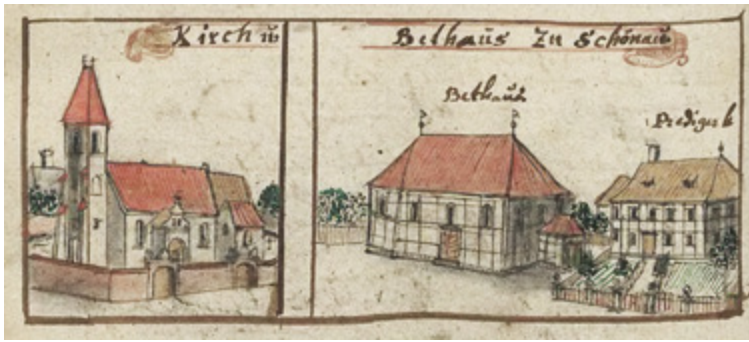 Kirch u
Bethaus Zu Schönau
Bethaus
Prediger h